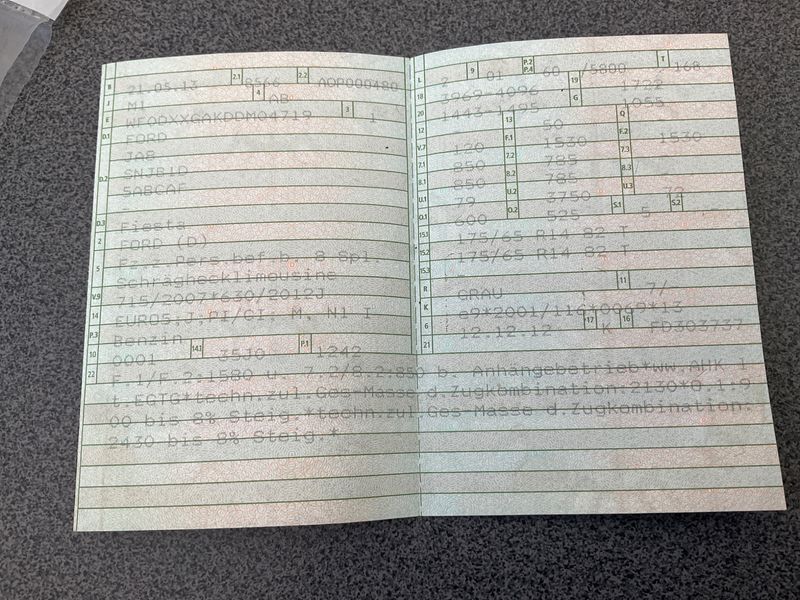 B 21.05.13 2.1 8566 2.2 AOP000480
J M1 4 AB
E WF0DXXGAKDDM04719 3 1
D.1 FORD
JA8
D.2 SNJB1D
5ABCAF
D.3 Fiesta
2 FORD (D)
5 Fz.z.Pers.bef.b. 8 Spl.
Schräghecklimousine
V.9 715/2007*630/2012J
14 EURO5,J,PI/CI, M, N1 I
P.3 Benzin
10 0001 14.1 35J0 P.1 1242
22 F.1/F.2:1580 u. 7.2/8.2:850 b. Anhängebetrieb*ww.AHK l
t.EGTG*techn.zul.Ges-Masse d.Zugkombination:2130*0.1:9
00 bis 8% Steig.*techn.zul.Ges-Masse d.Zugkombination:
2430 bis 8% Steig.*
L 2 9 01 P.2 P.4 60 /5800 T 168
18 3969-4096 19 1722
20 1443-1495 G 1055
12 - 13 60 Q -
V.7 120 F.1 1530 F.2 1530
7.1 850 7.2 785 7.3 -
8.1 850 8.2 785 8.3 -
U.1 79 U.2 3750 U.3 72
O.1 600 O.2 525 S.1 5 S.2 -
15.1 175/65 R14 82 T
15.2 175/65 R14 82 T
15.3 -
R GRAU 11 7/
K e9*2001/116*0069*13
6 12.12.12 17 K 16 FD303737
21